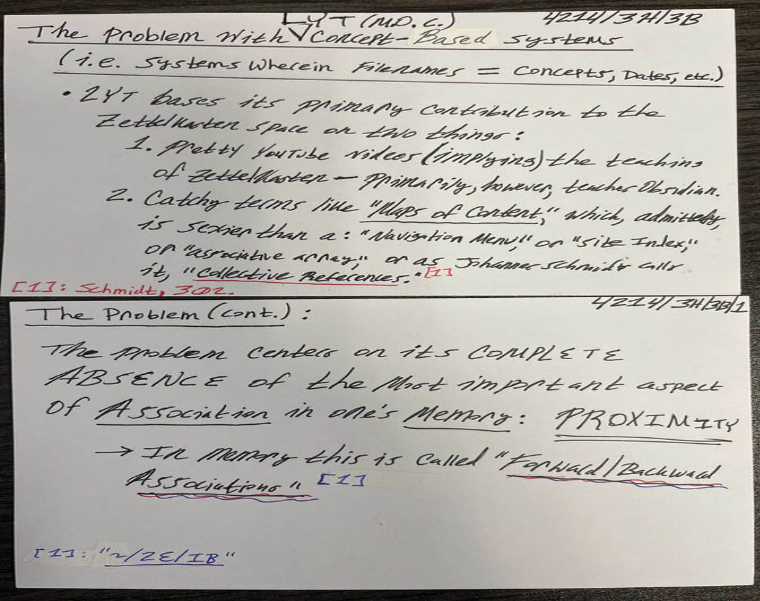 LYT (M.O.C.) 4214/3H/3B
The Problem With ✓ Concept-Based Systems
(i.e. Systems Wherein Filenames = Concepts, Dates, etc.)
• LYT bases its primary contribution to the
Zettelkasten space on two things:
1. Pretty YouTube videos (implying) the teaching
of Zettelkasten — primarily, however, teacher Obsidian.
2. Catchy terms like "Maps of Content," which, admittedly,
is sexier than a: "Navigation Menu," or "Site Index,"
or "associative array," or as Johannes Schmidt calls
it, "Collective References." [1]
[1]: Schmidt, 302.
4214/3H/3B/1
The Problem (cont.):
The problem centers on its COMPLETE
ABSENCE of the most important aspect
of Association in one's Memory: PROXIMITY
→ In memory this is called "Forward/Backward
Associations" [1]
[1]: "2/2E/1B"